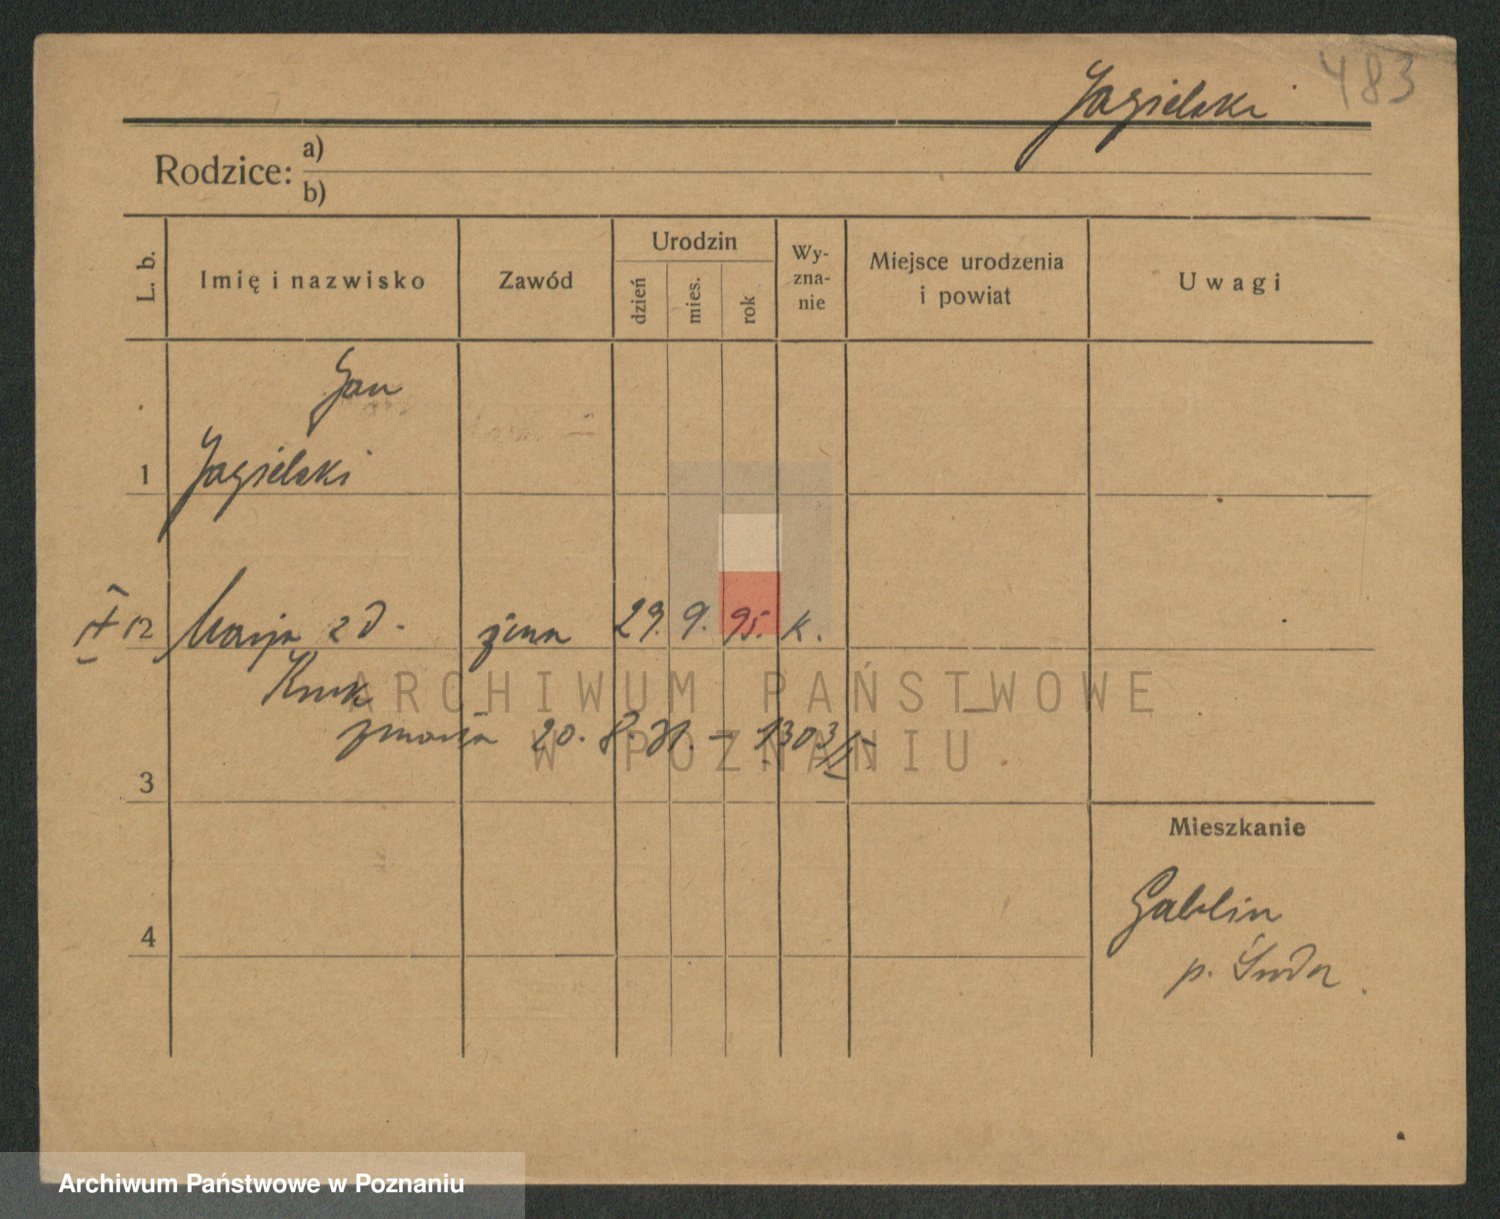 483
Jagielski
Rodzice: a)
b)
L. b.
Imię i nazwisko
Zawód
Urodzin
dzień
mies.
rok
Wy-
zna-
nie
Miejsce urodzenia
i powiat
Uwagi
Jan
1 Jagielski
12 Marja z d. żona 29. 9. 95. k.
Kruk
ARCHIWUM PAŃSTWOWE
zmarła 20. 8. 31. – 1303/II
W POZNANIU
3
Mieszkanie
4
Gablin
p. Środa
Archiwum Państwowe w Poznaniu